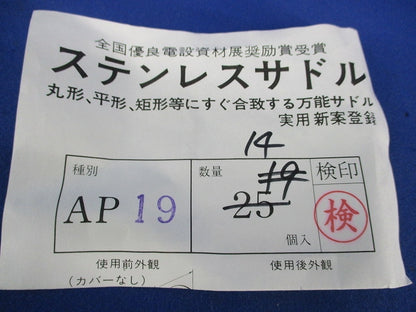 全国優良電設資材展奨励賞受賞
ステンレスサドル
丸形、平形、矩形等にすぐ合致する万能サドル
実用新案登録
14
種別 数量 19 検印
AP 19 25 検
個入
使用前外観 使用後外観
(カバーなし)